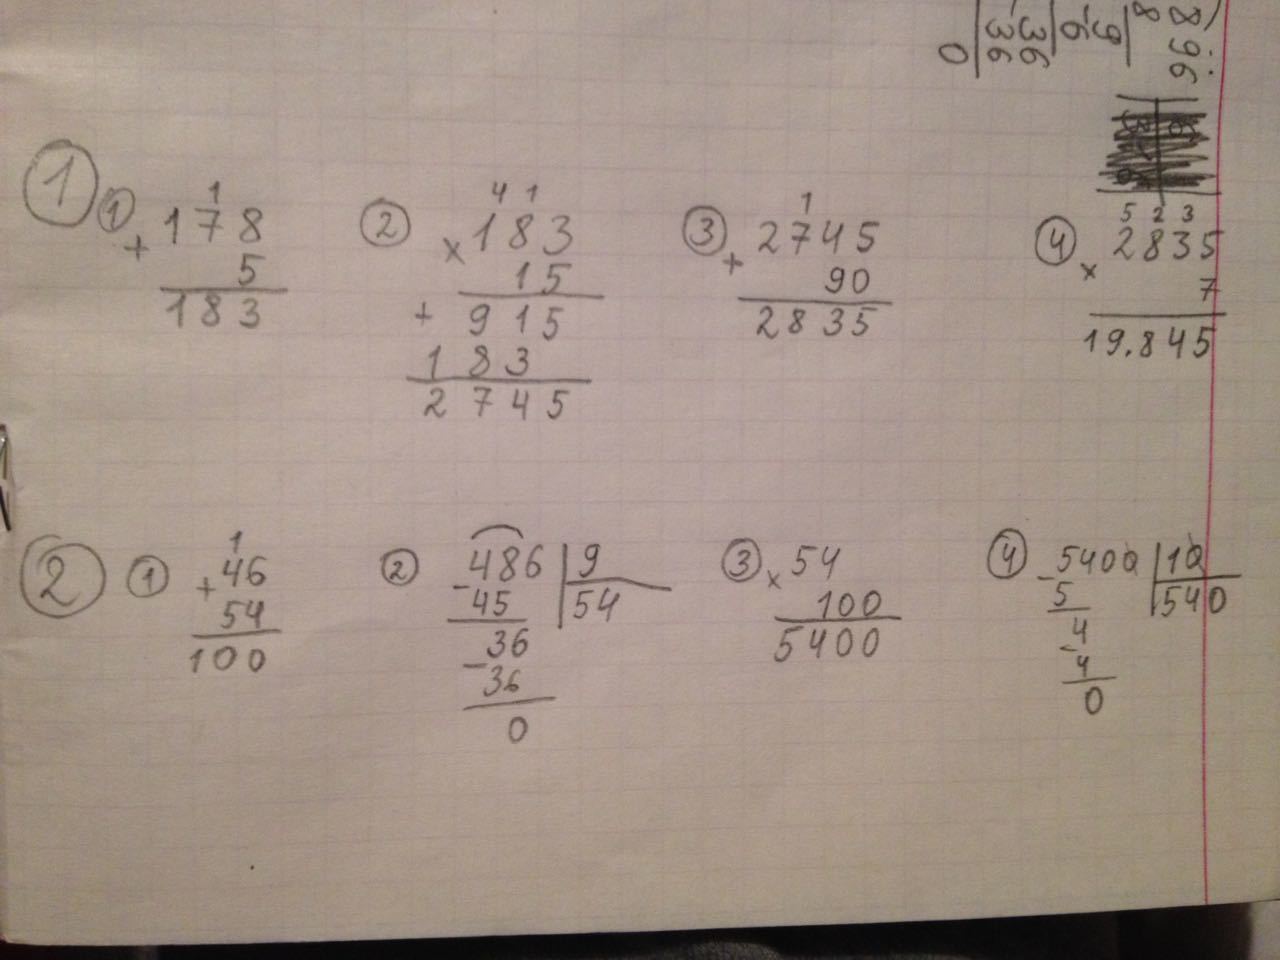 896
8
9
-6
36
-36
36
0
1
1 1
+ 178
5
183
2 4 1
× 183
15
+ 915
183
2745
3 1
+ 2745
90
2835
4 5 2 3
× 2835
7
19.845
2
1 1
+ 46
54
100
2 - 486 | 9
45 | 54
- 36
36
0
3 × 54
100
5400
4 - 5400 | 10
5 | 540
- 4
4
0